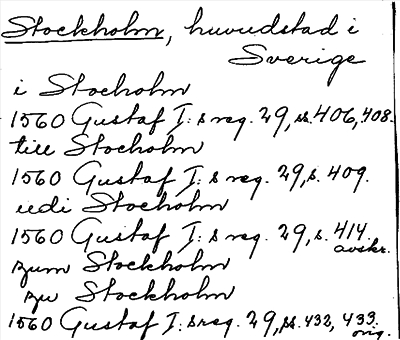 Stockholm, huvudstad i
Sverige
i Stocholm
1560 Gustaf I:s reg. 29, ss. 406, 408.
till Stocholm
1560 Gustaf I:s reg. 29, s. 409.
udi Stocholm
1560 Gustaf I:s reg. 29, s. 414
avskr.
zum Stockholm
zu Stockholm
1560 Gustaf I:s reg. 29, ss. 432, 433
orig.